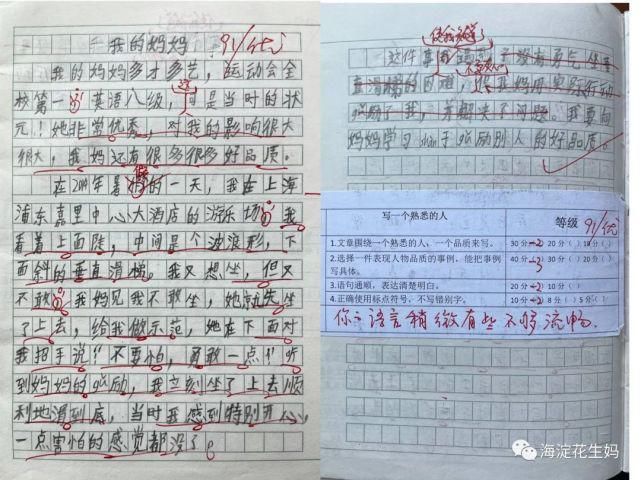 我的妈妈
91/优
我的妈妈多才多艺，运动会全
校第一，英语八级，还是当时的状
元！她非常优秀，对我的影响很大
很大，我妈还有很多很多好品质。
在 年暑假的一天，我在上海
浦东嘉里中心大酒店的游乐场，我
看着上面陡，中间是个波浪形，下
面斜的垂直滑梯。我又想坐，但又
不敢，我妈见我不敢坐，她就先坐
了上去，给我做示范，她在下面对
我把手说“不要怕，勇敢一点！”听
到妈妈的鼓励，我立刻坐了上去顺
利地滑到底，当时我感到特别开心，
一点害怕的感觉都没了。
这件事 没有勇气坐垂
直滑梯的困难，我妈用实际行动
鼓励了我，并解决了问题。我要向
妈妈学习 于鼓励别人的好品质。
写一个熟悉的人
等级 91/优
1.文章围绕一个熟悉的人、一个品质来写。 30分 -2 20分（ ）18分（ ）
2.选择一件表现人物品质的事例，能把事例写具体。 40分 -3 30分（ ）20分（ ）
3.语句通顺，表达清楚明白。 20分 -2 10分（ ）5分（ ）
4.正确使用标点符号，不写错别字。 10分 -2 8分（ ）5分（ ）
你的语言稍微有些不够流畅。
海淀花生妈